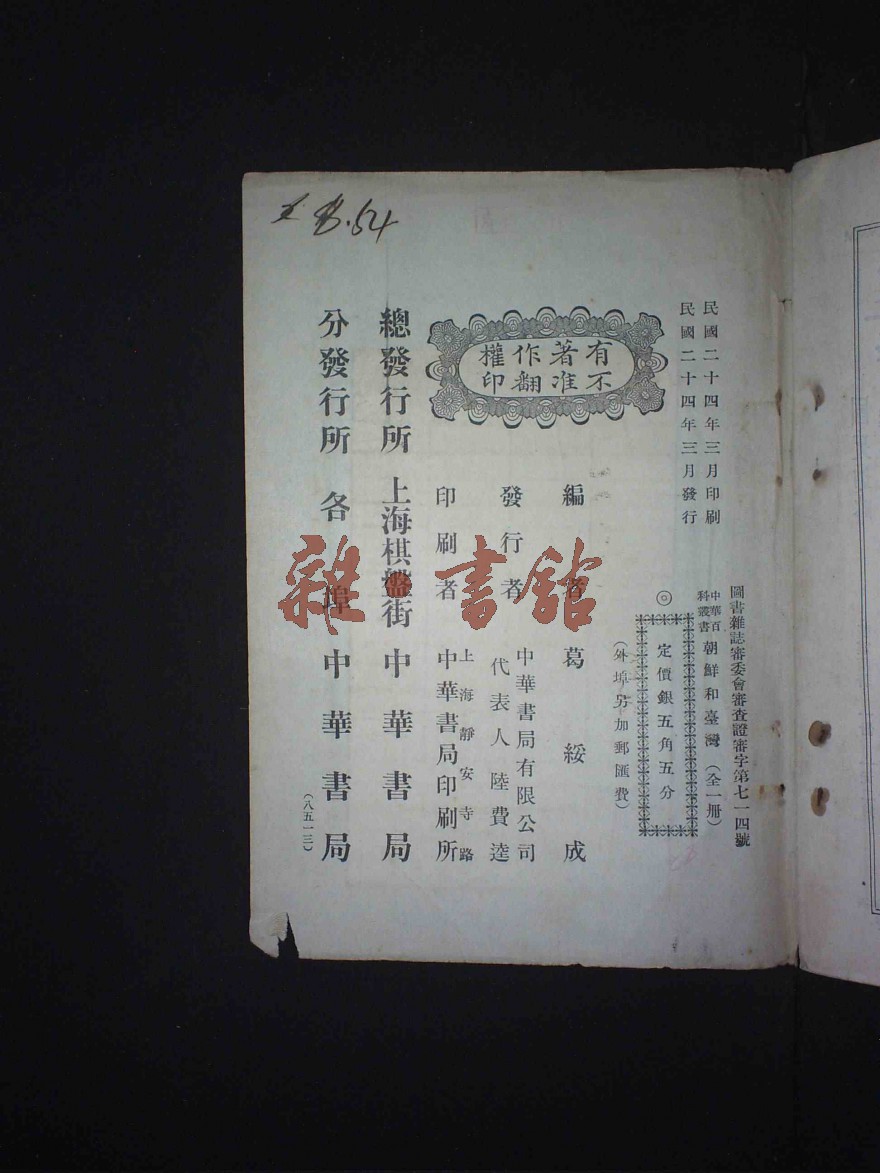 民國二十四年三月印刷
民國二十四年三月發行
圖書雜誌審委會審查證審字第七一四號
中華百科叢書 朝鮮和臺灣（全一冊）
◎定價銀五角五分
（外埠另加郵匯費）
有著作權
不准翻印
編者 葛綏成
發行者 中華書局有限公司
代表人 陸費逵
印刷者 上海靜安寺路
中華書局印刷所
總發行所 上海棋盤街 中華書局
分發行所 各埠 中華書局
（八五一三）
B.54
雜書館